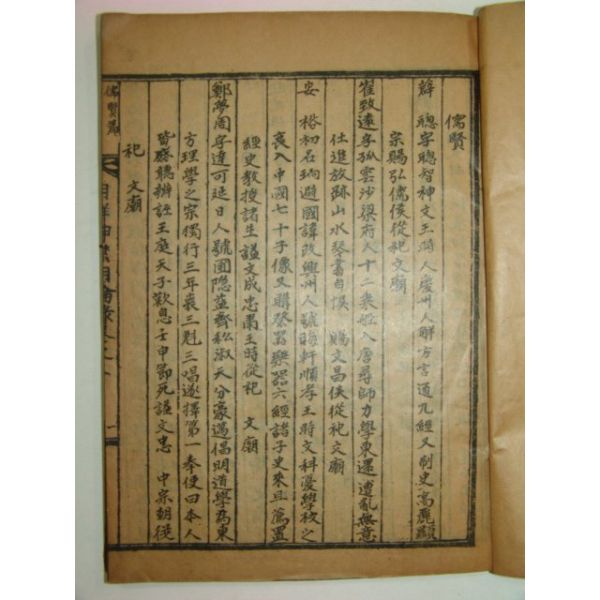 儒賢
薛 聰字聰智神文王時人慶州人解方言通九經又制史高麗顯
宗賜弘儒侯從祀文廟
崔致遠字孤雲沙梁府人十二歲船入唐尋師力學東還遭亂無意
仕進放跡山水琴書自娛 賜文昌侯從祀文廟
安 裕初名珦避國諱改興州人號晦軒順孝王時文科憂學校之
衰入中國七十子像又購祭器樂器六經諸子史來且薦置
經史教授諸生諡文成忠肅王時從祀 文廟
鄭夢周字達可延日人號圃隱益齋私淑天分豪邁倡明道學爲東
方理學之宗獨行三年喪三魁三唱遂擇第一奉使曰本人
皆麻聽辨誣王庭天子歎息壬申節死諡文忠 中宗朝從
祀 文廟
儒賢